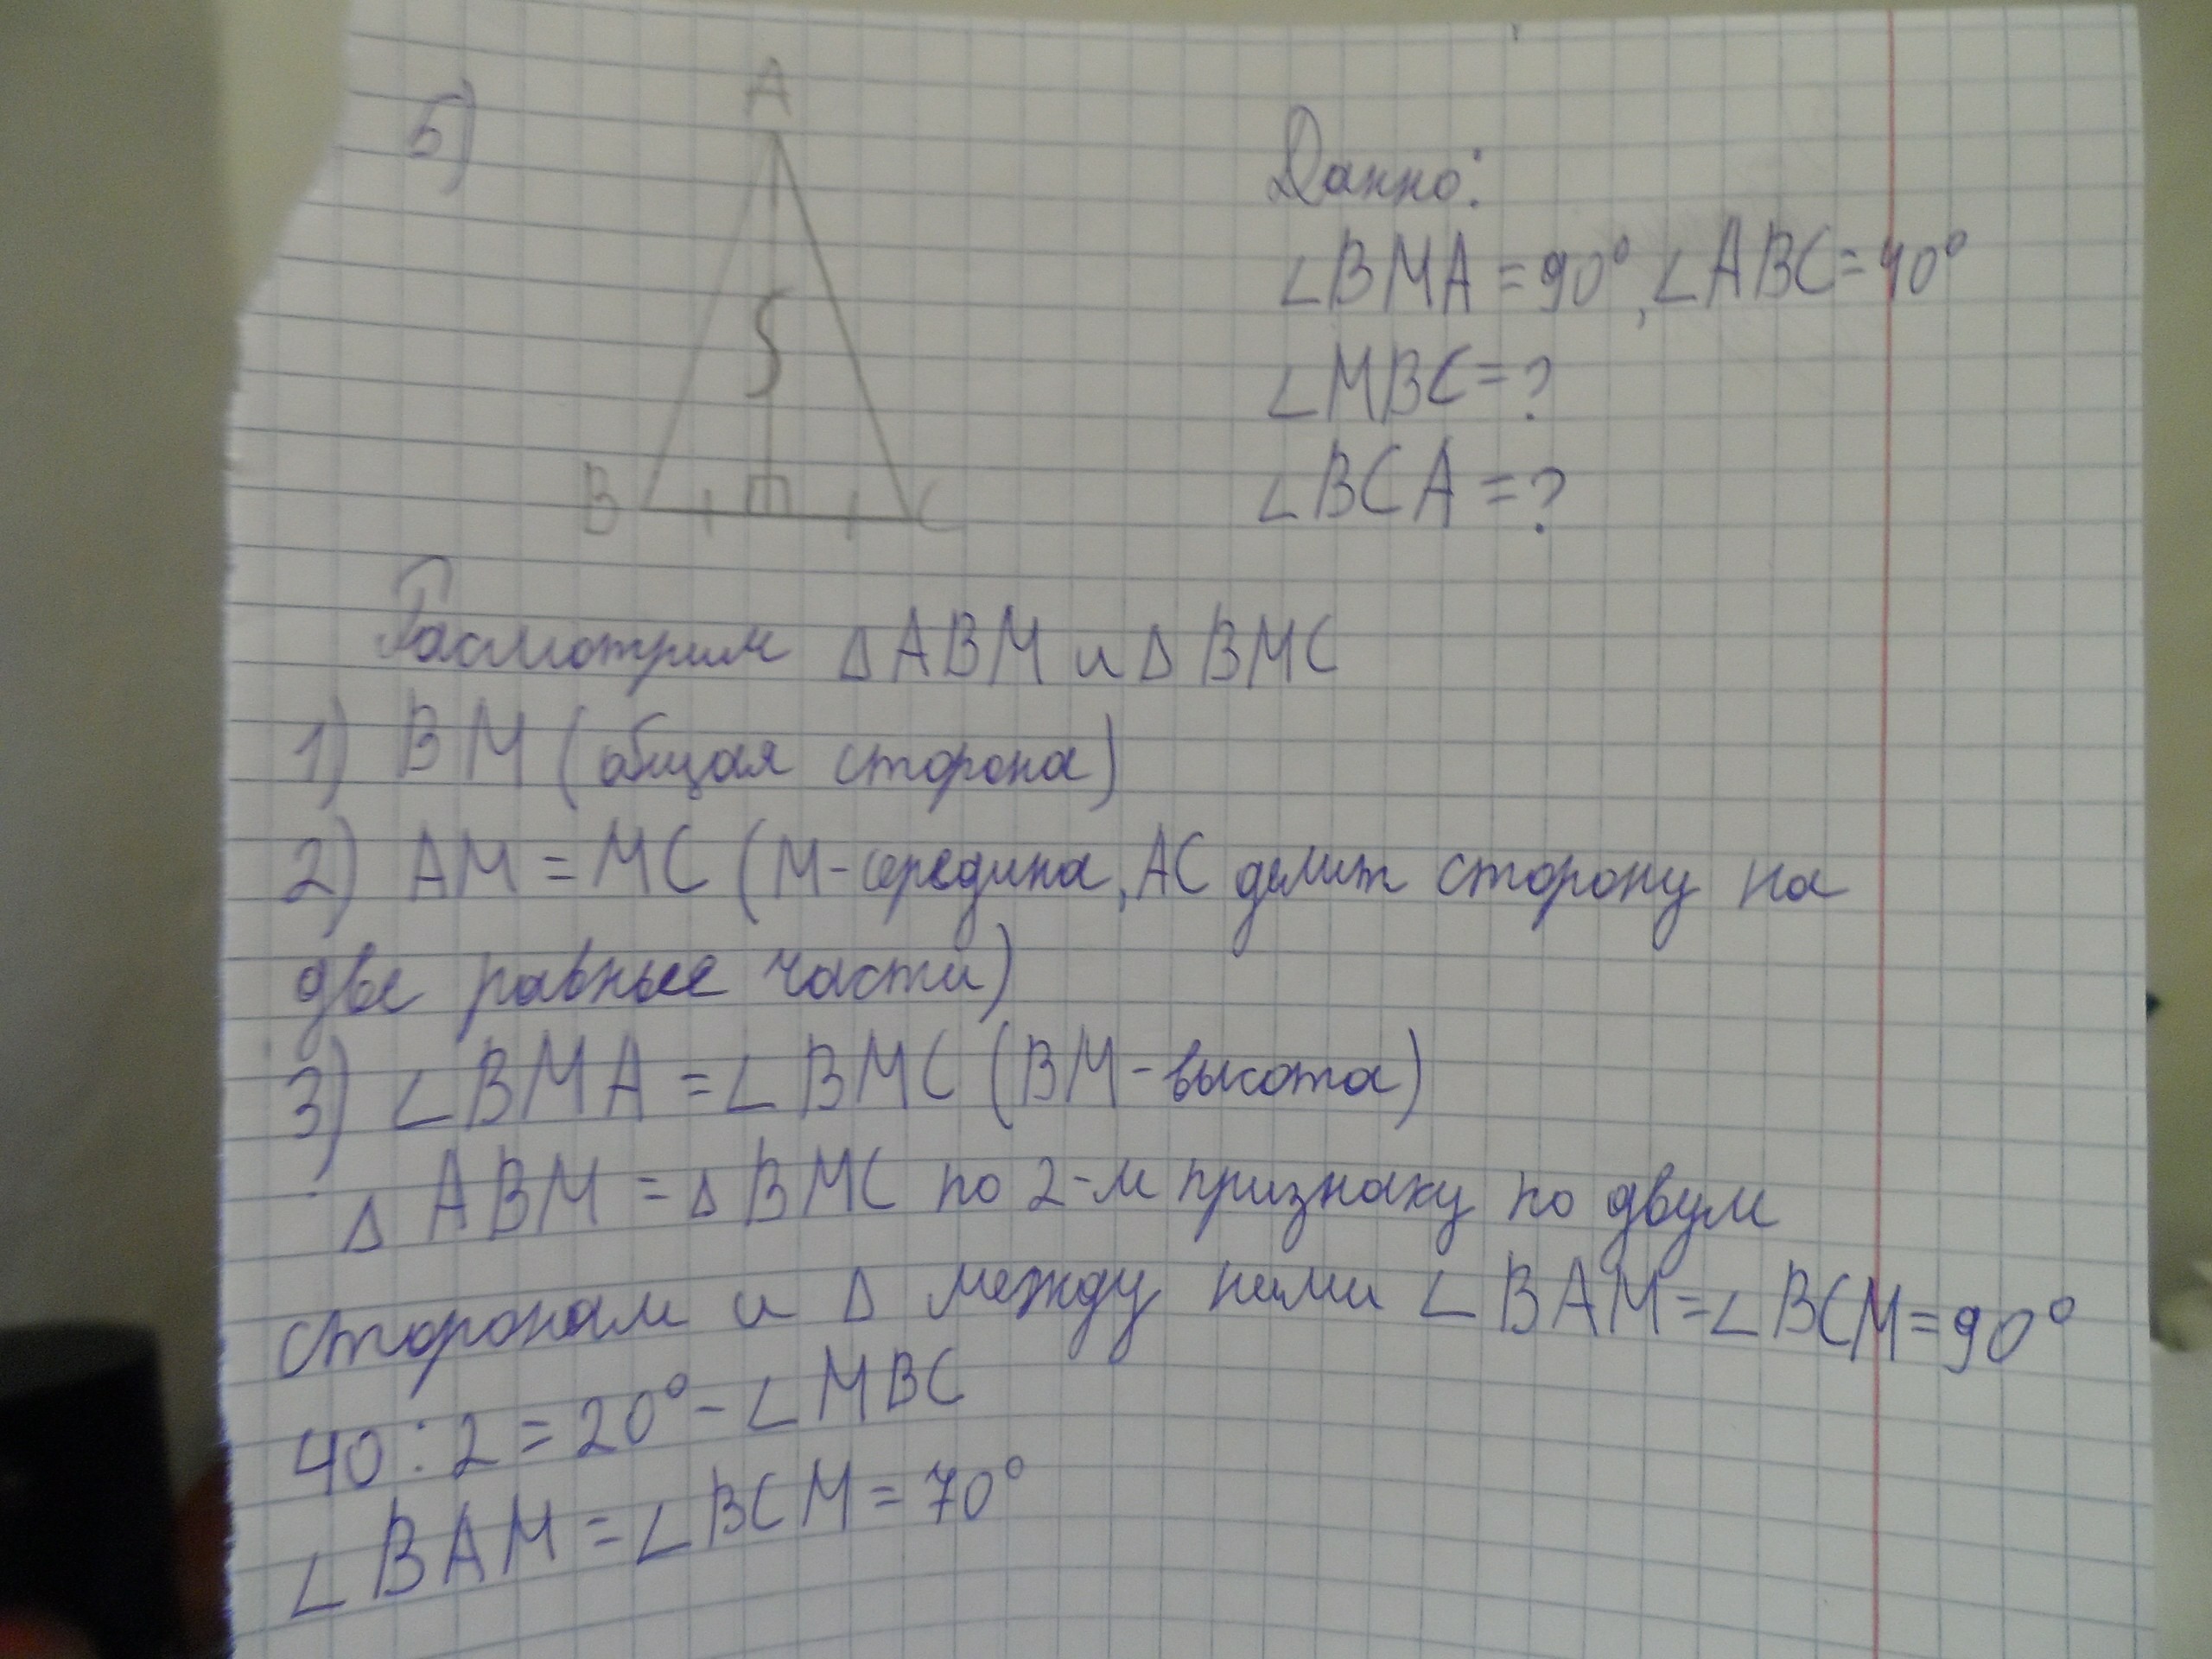 5)
A
B C
Данно:
∠BMA = 90°, ∠ABC = 40°
∠MBC = ?
∠BCA = ?
Расмотрим Δ ABM и Δ BMC
1) BM (общая сторона)
2) AM = MC (M-середина, AC делит сторону на
две равные части)
3) ∠BMA = ∠BMC (BM-высота)
Δ ABM = Δ BMC по 2-м признаку по двум
сторонам и Δ между ними ∠BAM = ∠BCM = 90°
40 : 2 = 20° - ∠MBC
∠BAM = ∠BCM = 70°